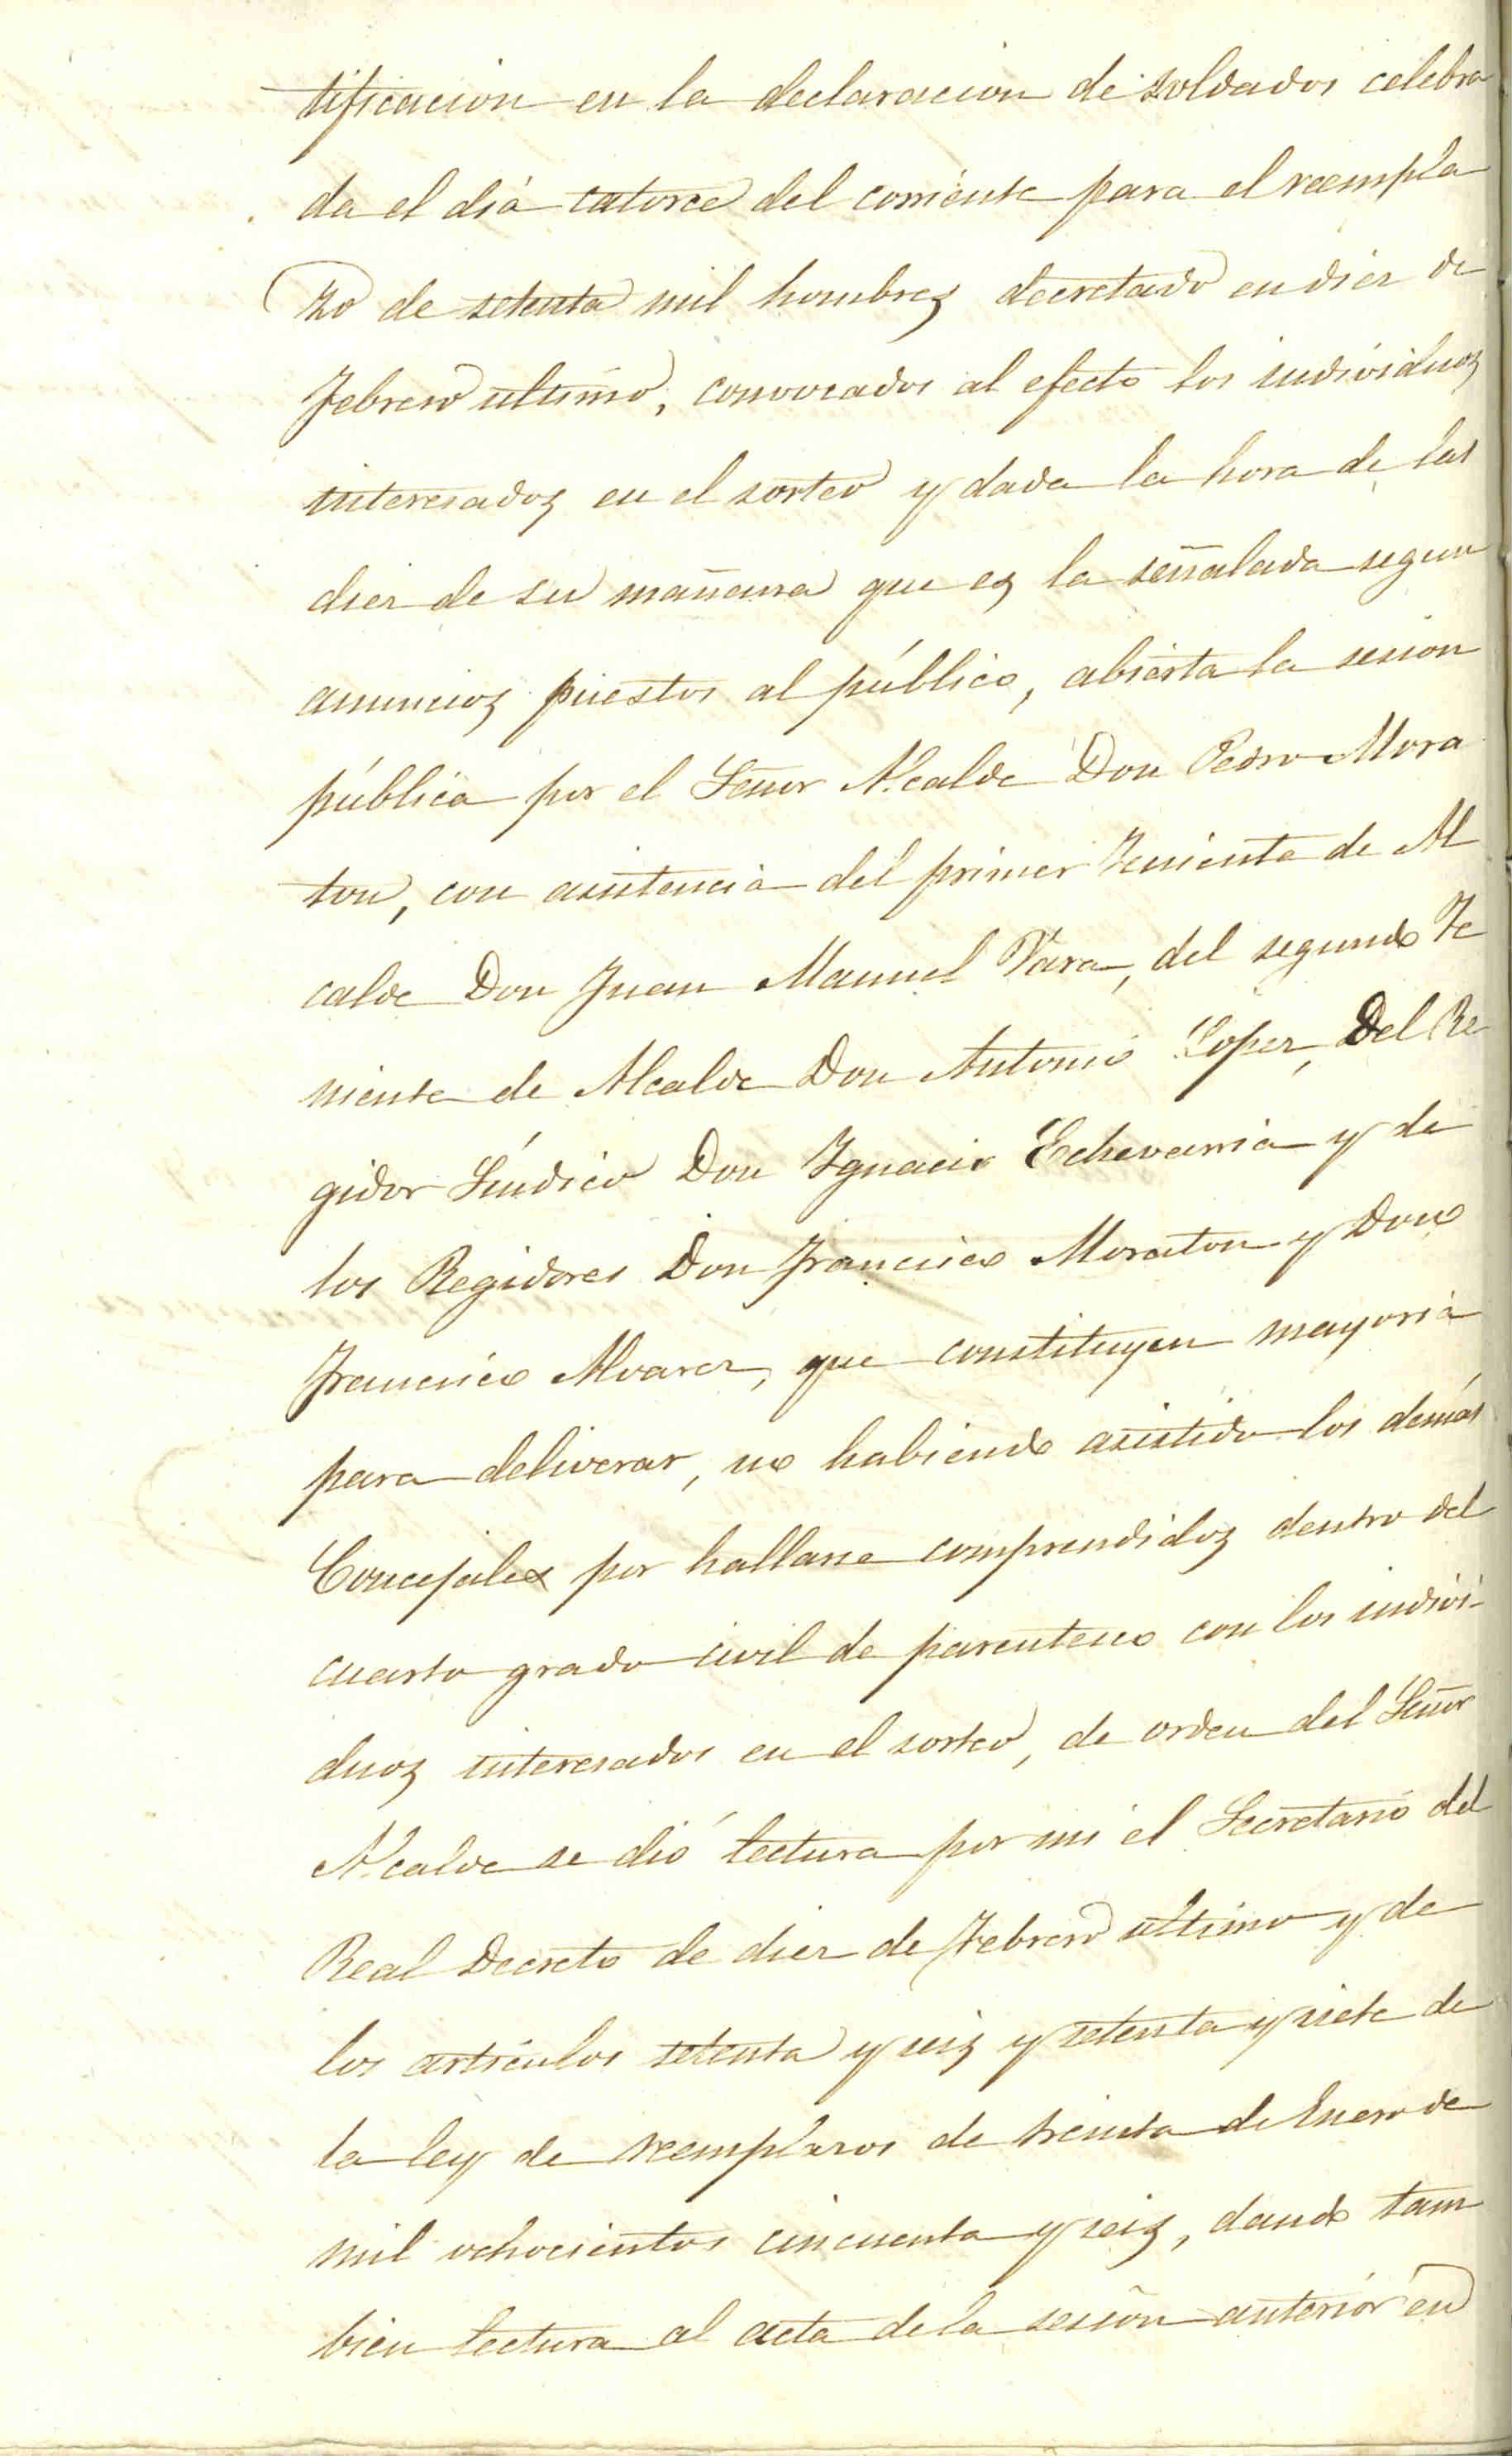 tificacion en la declaracion de soldados celebra
da el diá catorce del corriente para el reempla
zo de setenta mil hombres decretado en diez de
Febrero ultimo, convocados al efecto los individuos
interesados en el sorteo y dada la hora de las
diez de su mañana que es la señalada segun
anuncios puestos al público, abierta la sesion
pública por el Señor Alcalde Don Pedro Mora
ton, con asistencia del primer Teniente de Al
calde Don Juan Manuel Vara, del segundo Te
niente de Alcalde Don Antonio Lopez, Del Re
gidor Síndico Don Ignacio Echevarria y de
los Regidores Don Francisco Moraton y Don
Francisco Alvarez, que constituyen mayoria
para deliverar, no habiendo asistido los demás
Concejales por hallarse comprendidos dentro del
cuarto grado civil de parentesco con los indivi-
duos interesados en el sorteo, de orden del Señor
Alcalde se dió lectura por mi el Secretario del
Real Decreto de diez de Febrero ultimo y de
los articulos setenta y seis y setenta y siete de
la ley de reemplazos de treinta de Enero de
mil ochocientos cincuenta y seis, dando tam
bien lectura al acta de la sesion anterior en